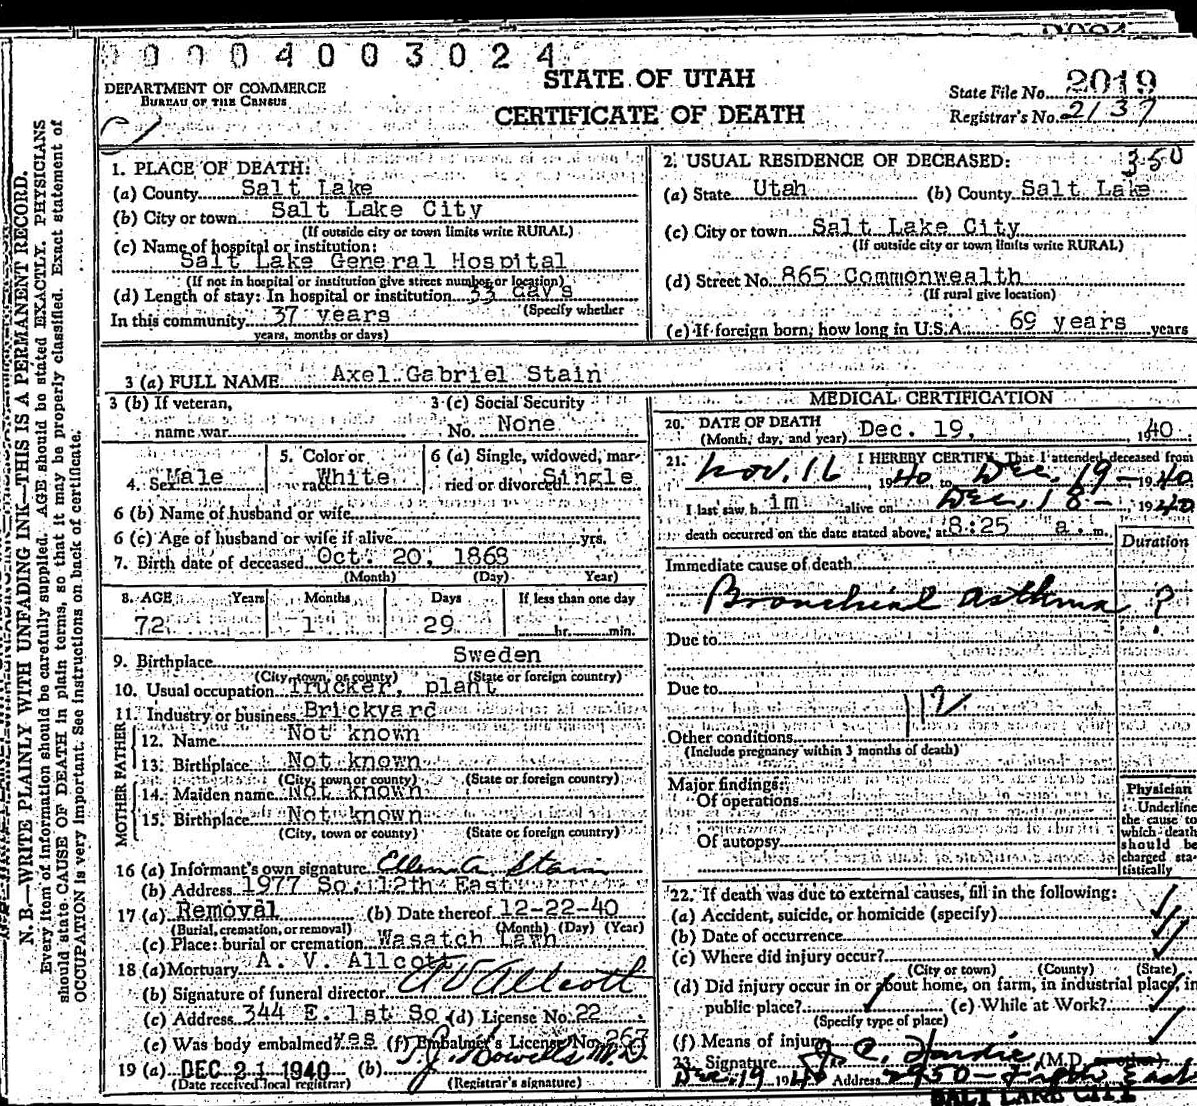 00004003024
DEPARTMENT OF COMMERCE
BUREAU OF THE CENSUS
STATE OF UTAH
CERTIFICATE OF DEATH
State File No. 2019
Registrar's No. 2137
N. B.—WRITE PLAINLY WITH UNFADING INK—THIS IS A PERMANENT RECORD.
Every item of information should be carefully supplied. AGE should be stated EXACTLY. PHYSICIANS
should state CAUSE OF DEATH in plain terms, so that it may be properly classified. Exact statement of
OCCUPATION is very important. See instructions on back of certificate.
1. PLACE OF DEATH:
(a) County Salt Lake
(b) City or town Salt Lake City
(If outside city or town limits write RURAL)
(c) Name of hospital or institution:
Salt Lake General Hospital
(If not in hospital or institution give street number or location)
(d) Length of stay: In hospital or institution 33 days
(Specify whether
In this community 37 years
years, months or days)
2. USUAL RESIDENCE OF DECEASED: 350
(a) State Utah (b) County Salt Lake
(c) City or town Salt Lake City
(If outside city or town limits write RURAL)
(d) Street No. 865 Commonwealth
(If rural give location)
(e) If foreign born, how long in U.S.A. 69 years years
3 (a) FULL NAME Axel Gabriel Stain
3 (b) If veteran, 3 (c) Social Security
name war No. None
4. Sex Male 5. Color or race White 6 (a) Single, widowed, married or divorced Single
6 (b) Name of husband or wife
6 (c) Age of husband or wife if alive yrs.
7. Birth date of deceased Oct. 20, 1868
(Month) (Day) Year)
8. AGE Years Months Days If less than one day
72 1 29 hr. min.
9. Birthplace Sweden
(City, town, or county) (State or foreign country)
10. Usual occupation Trucker, plant
11. Industry or business Brickyard
FATHER
12. Name Not known
13. Birthplace Not known
(City, town or county) (State or foreign country)
MOTHER
14. Maiden name Not known
15. Birthplace Not known
(City, town or county) (State or foreign country)
16 (a) Informant's own signature Ellen A Stain
(b) Address 1977 So. 12th East
17 (a) Removal (b) Date thereof 12-22-40
(Burial, cremation, or removal) (Month) (Day) (Year)
(c) Place: burial or cremation Wasatch Lawn
18 (a) Mortuary A. V. Allcott
(b) Signature of funeral director A V Allcott
(c) Address 344 E. 1st So (d) License No. 22
(e) Was body embalmed? Yes (f) Embalmer's License No. 263
19 (a) DEC 21 1940 (b) T. J. Howells M.D.
(Date received local registrar) (Registrar's signature)
MEDICAL CERTIFICATION
20. DATE OF DEATH
(Month, day, and year) Dec. 19, 1940
21. I HEREBY CERTIFY, That I attended deceased from
Nov. 16, 1940 to Dec. 19 - 1940
I last saw him alive on Dec. 18 -, 1940
death occurred on the date stated above, at 8:25 a. m.
Duration
Immediate cause of death
Bronchial asthma ?
Due to
Due to
112
Other conditions
(Include pregnancy within 3 months of death)
Major findings:
Of operations
Of autopsy
Physician
Underline
the cause to
which death
should be
charged sta-
tistically
22. If death was due to external causes, fill in the following:
(a) Accident, suicide, or homicide (specify)
(b) Date of occurrence
(c) Where did injury occur?
(City or town) (County) (State)
(d) Did injury occur in or about home, on farm, in industrial place, in
public place? (e) While at Work?
(Specify type of place)
(f) Means of injury
23. Signature J. C. Hardie (M.D.
Dec. 19 1940 Address
SALT LAKE CITY